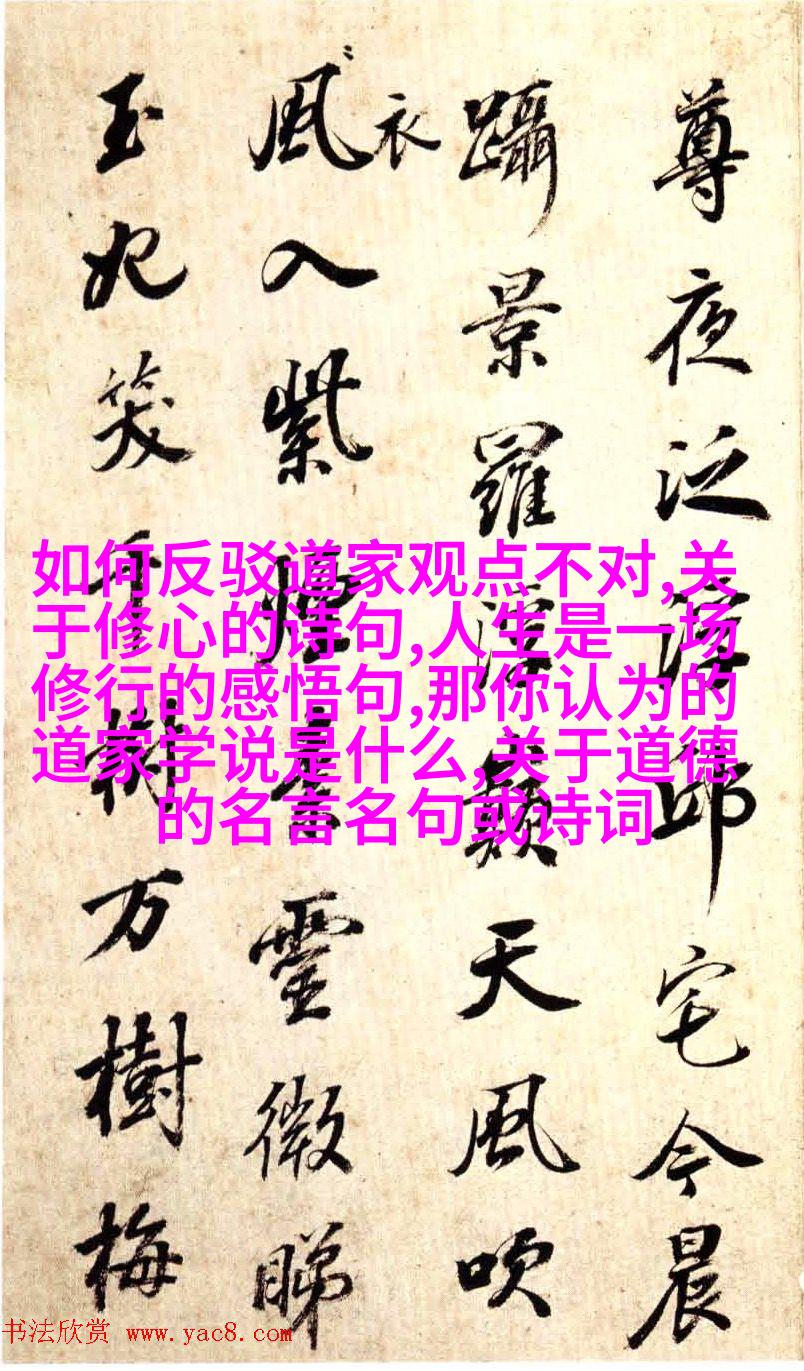 尊夜泛浮邱宅今晨
躡景羅浮顛天風吹
衣
風入紫煙臺靈徽睇
玉妃笑千樹万樹梅
如何反驳道家观点不对,关
于修心的诗句,人生是一场
修行的感悟句,那你认为的
道家学说是什么,关于道德
的名言名句或诗词
书法欣赏 www.yac8.com